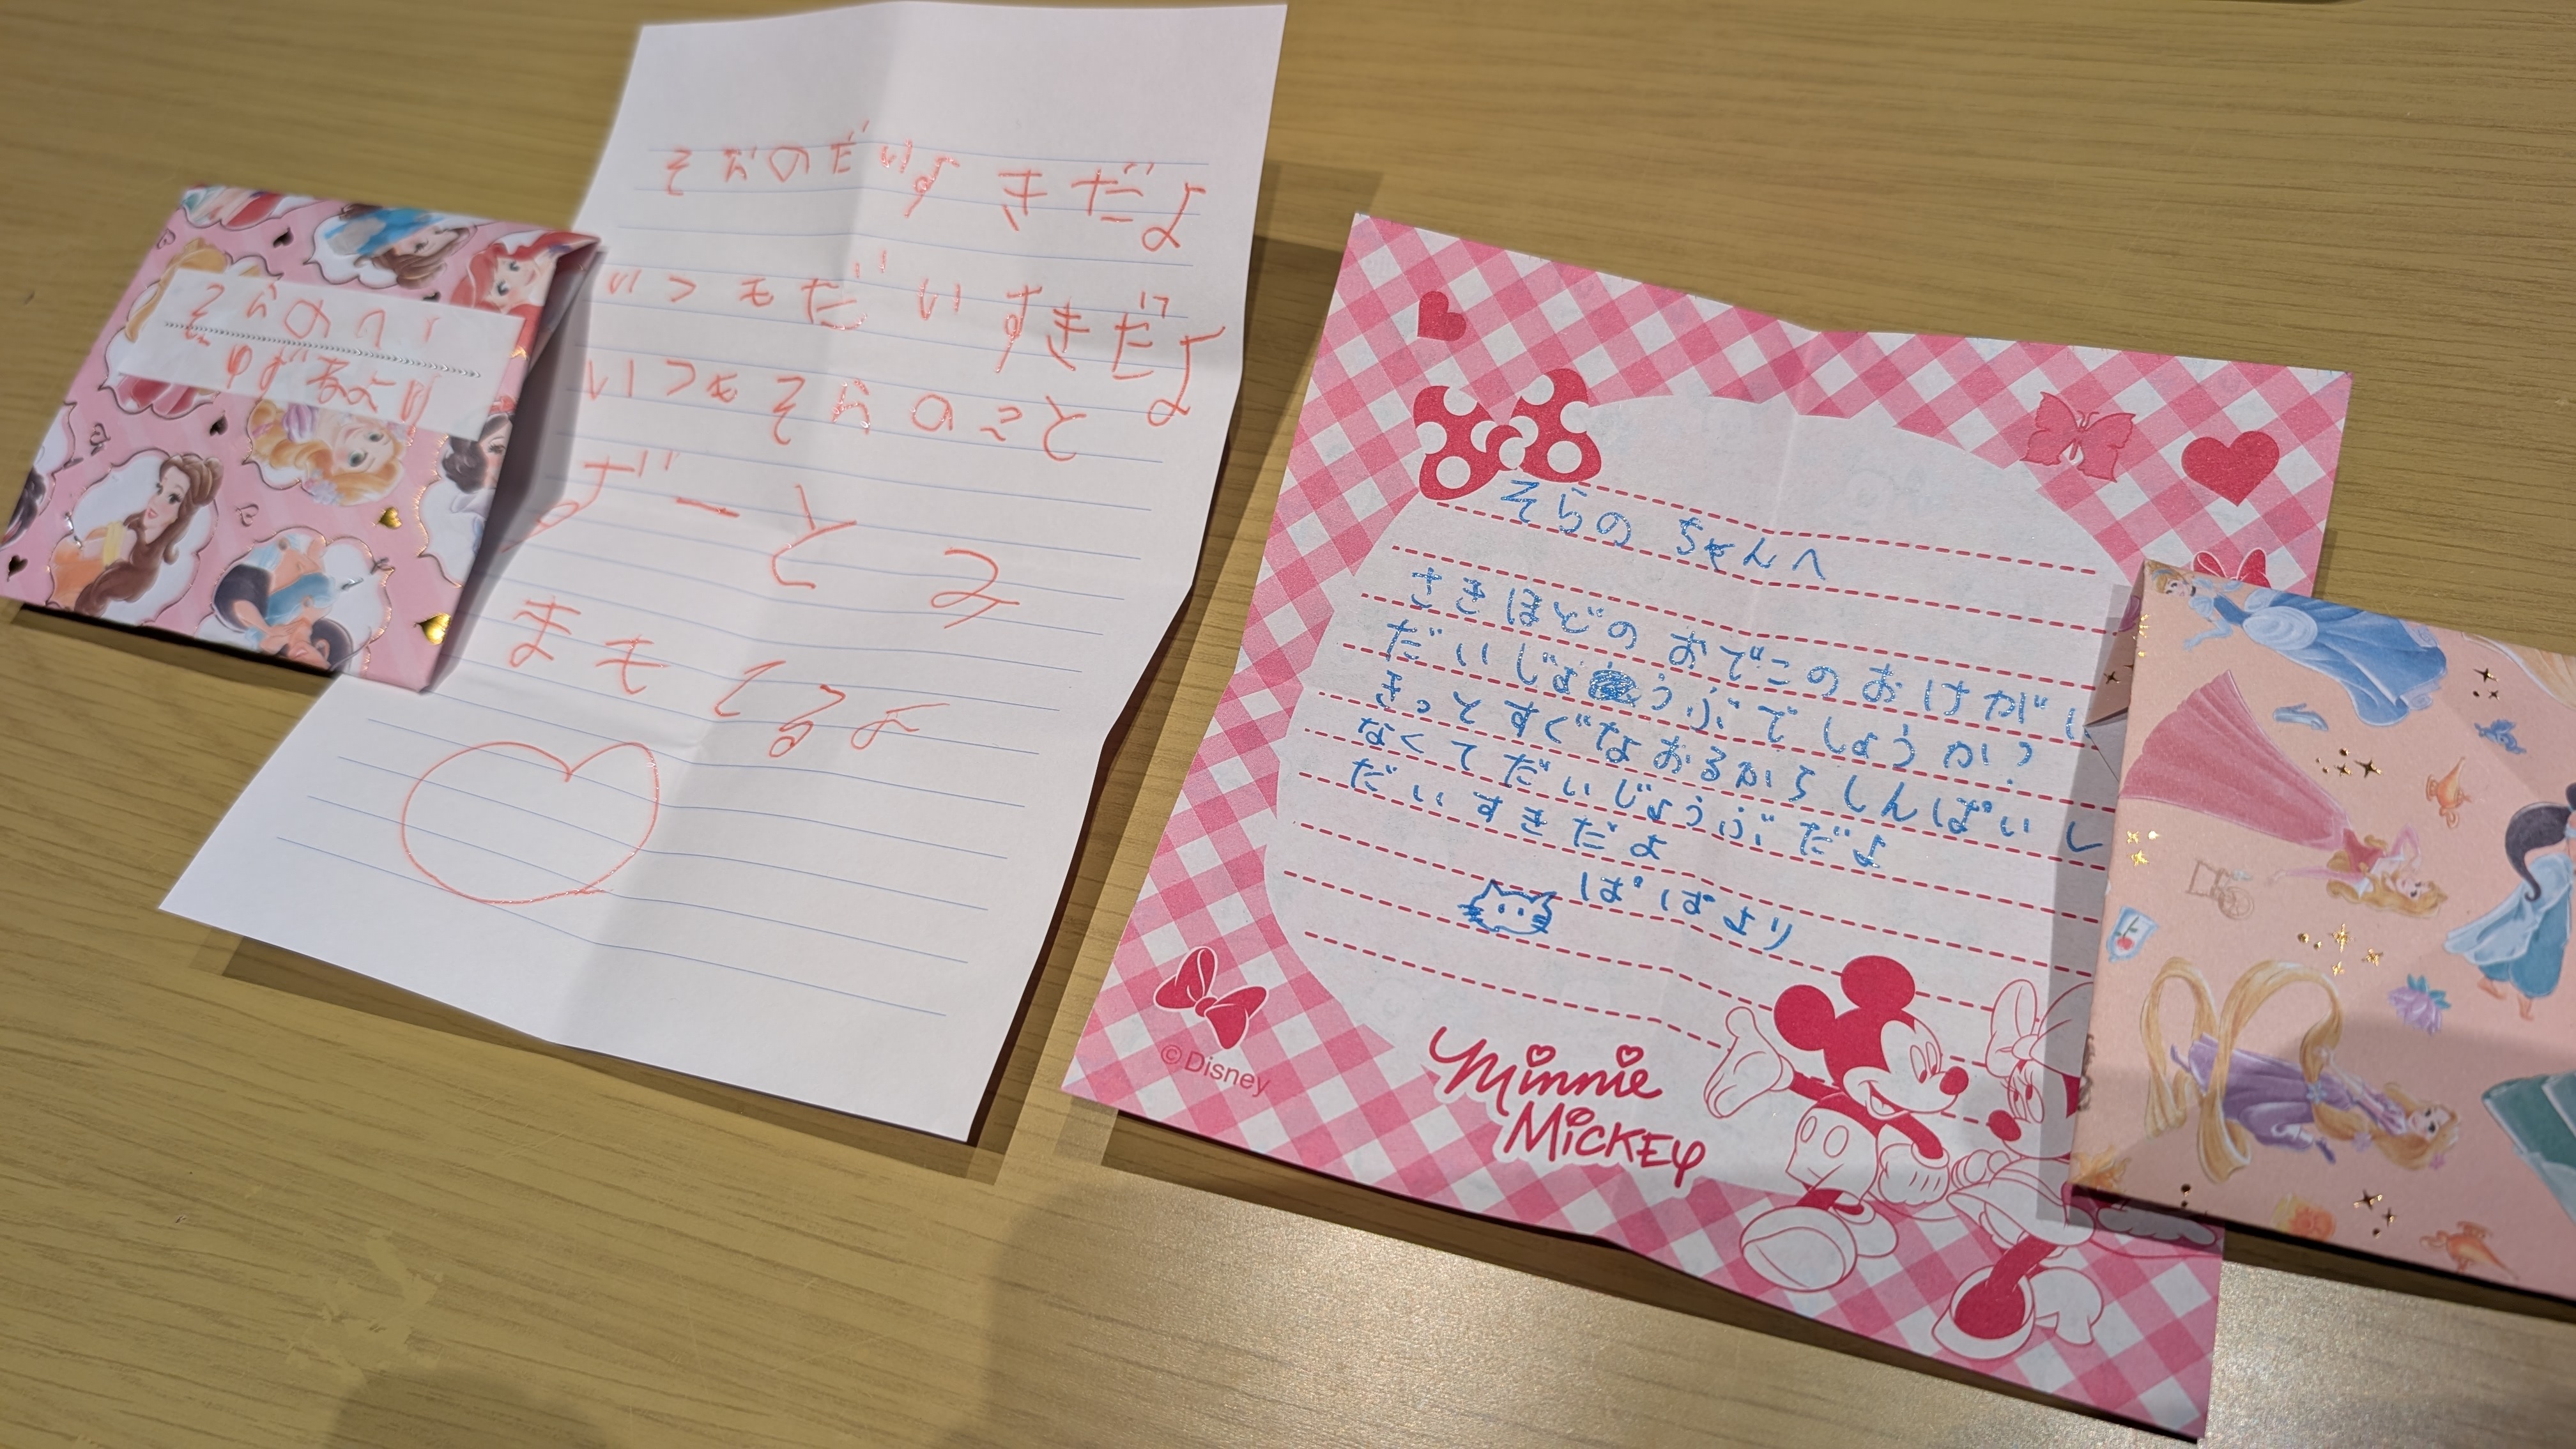 そらのへ
ゆず希より
そらのだいすきだよ
いつもだいすきだよ
いつもそらのこと
ずーとみ
まもてるよ
そらのちゃんへ
さきほどのおでこのおけが
だいじょうぶでしょうか?
きっとすぐなおるからしんぱいし
なくてだいじょうぶだよ
だいすきだよ
ぱぱより
Minnie
Mickey
© Disney